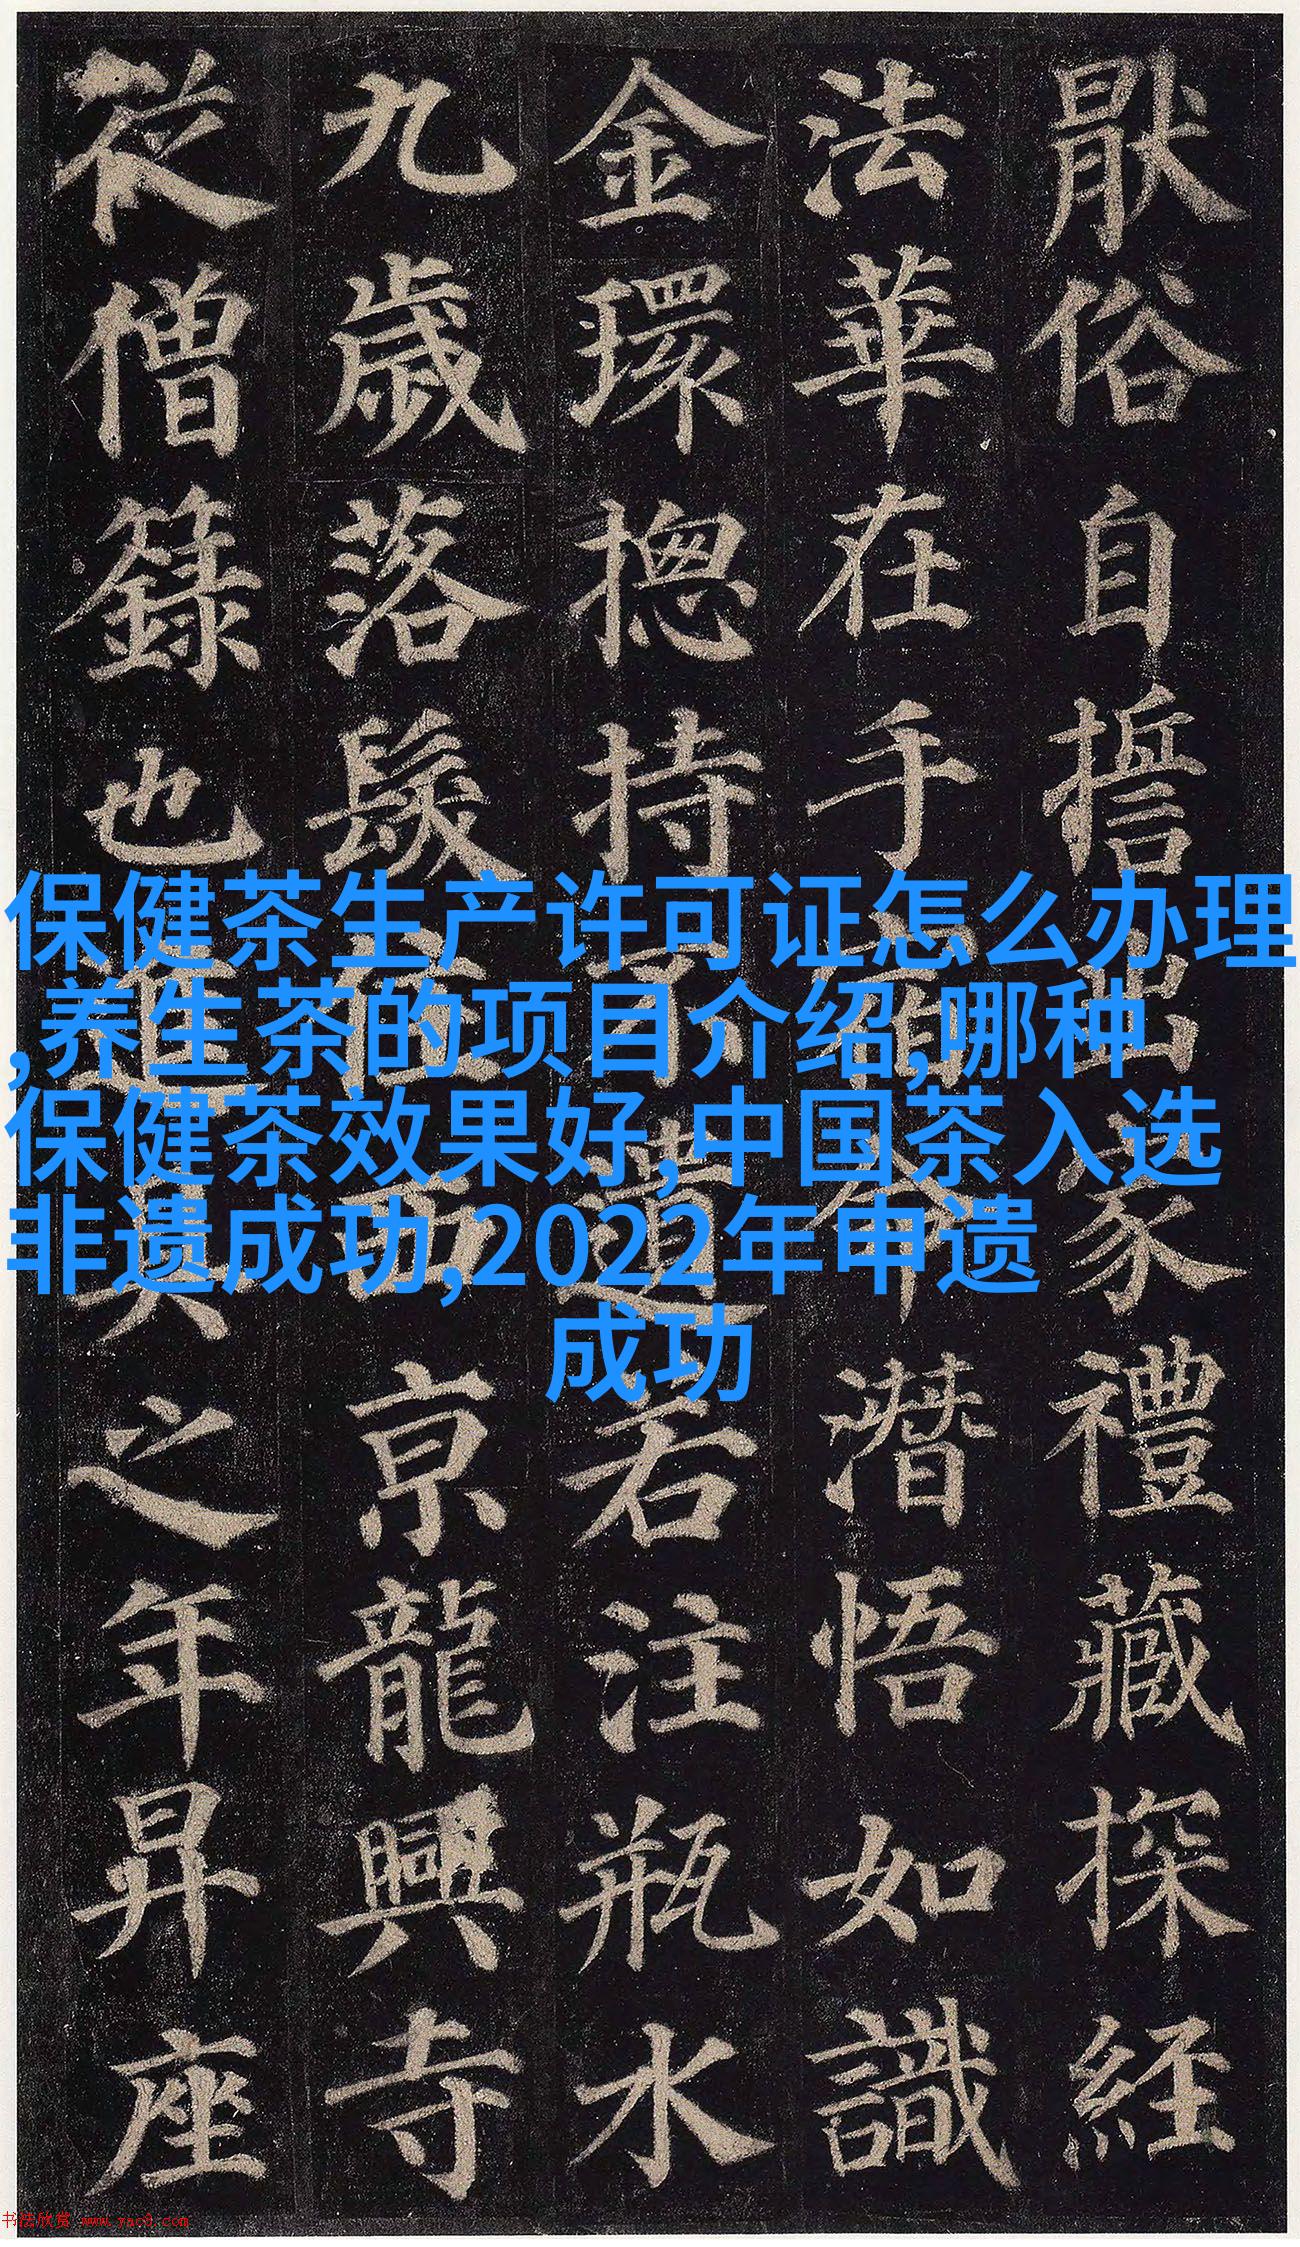 猒俗自誓出家禮藏探經
法華在手宿命潛悟如識
金環揔持不遺若注瓶水
九歲落髮住西京龍興寺
從僧籙也進具之年昇座
保健茶生产许可证怎么办理
,养生茶的项目介绍,哪种
保健茶效果好,中国茶入选
非遗成功,2022年申遗
成功
书法欣赏 www.yac8.com